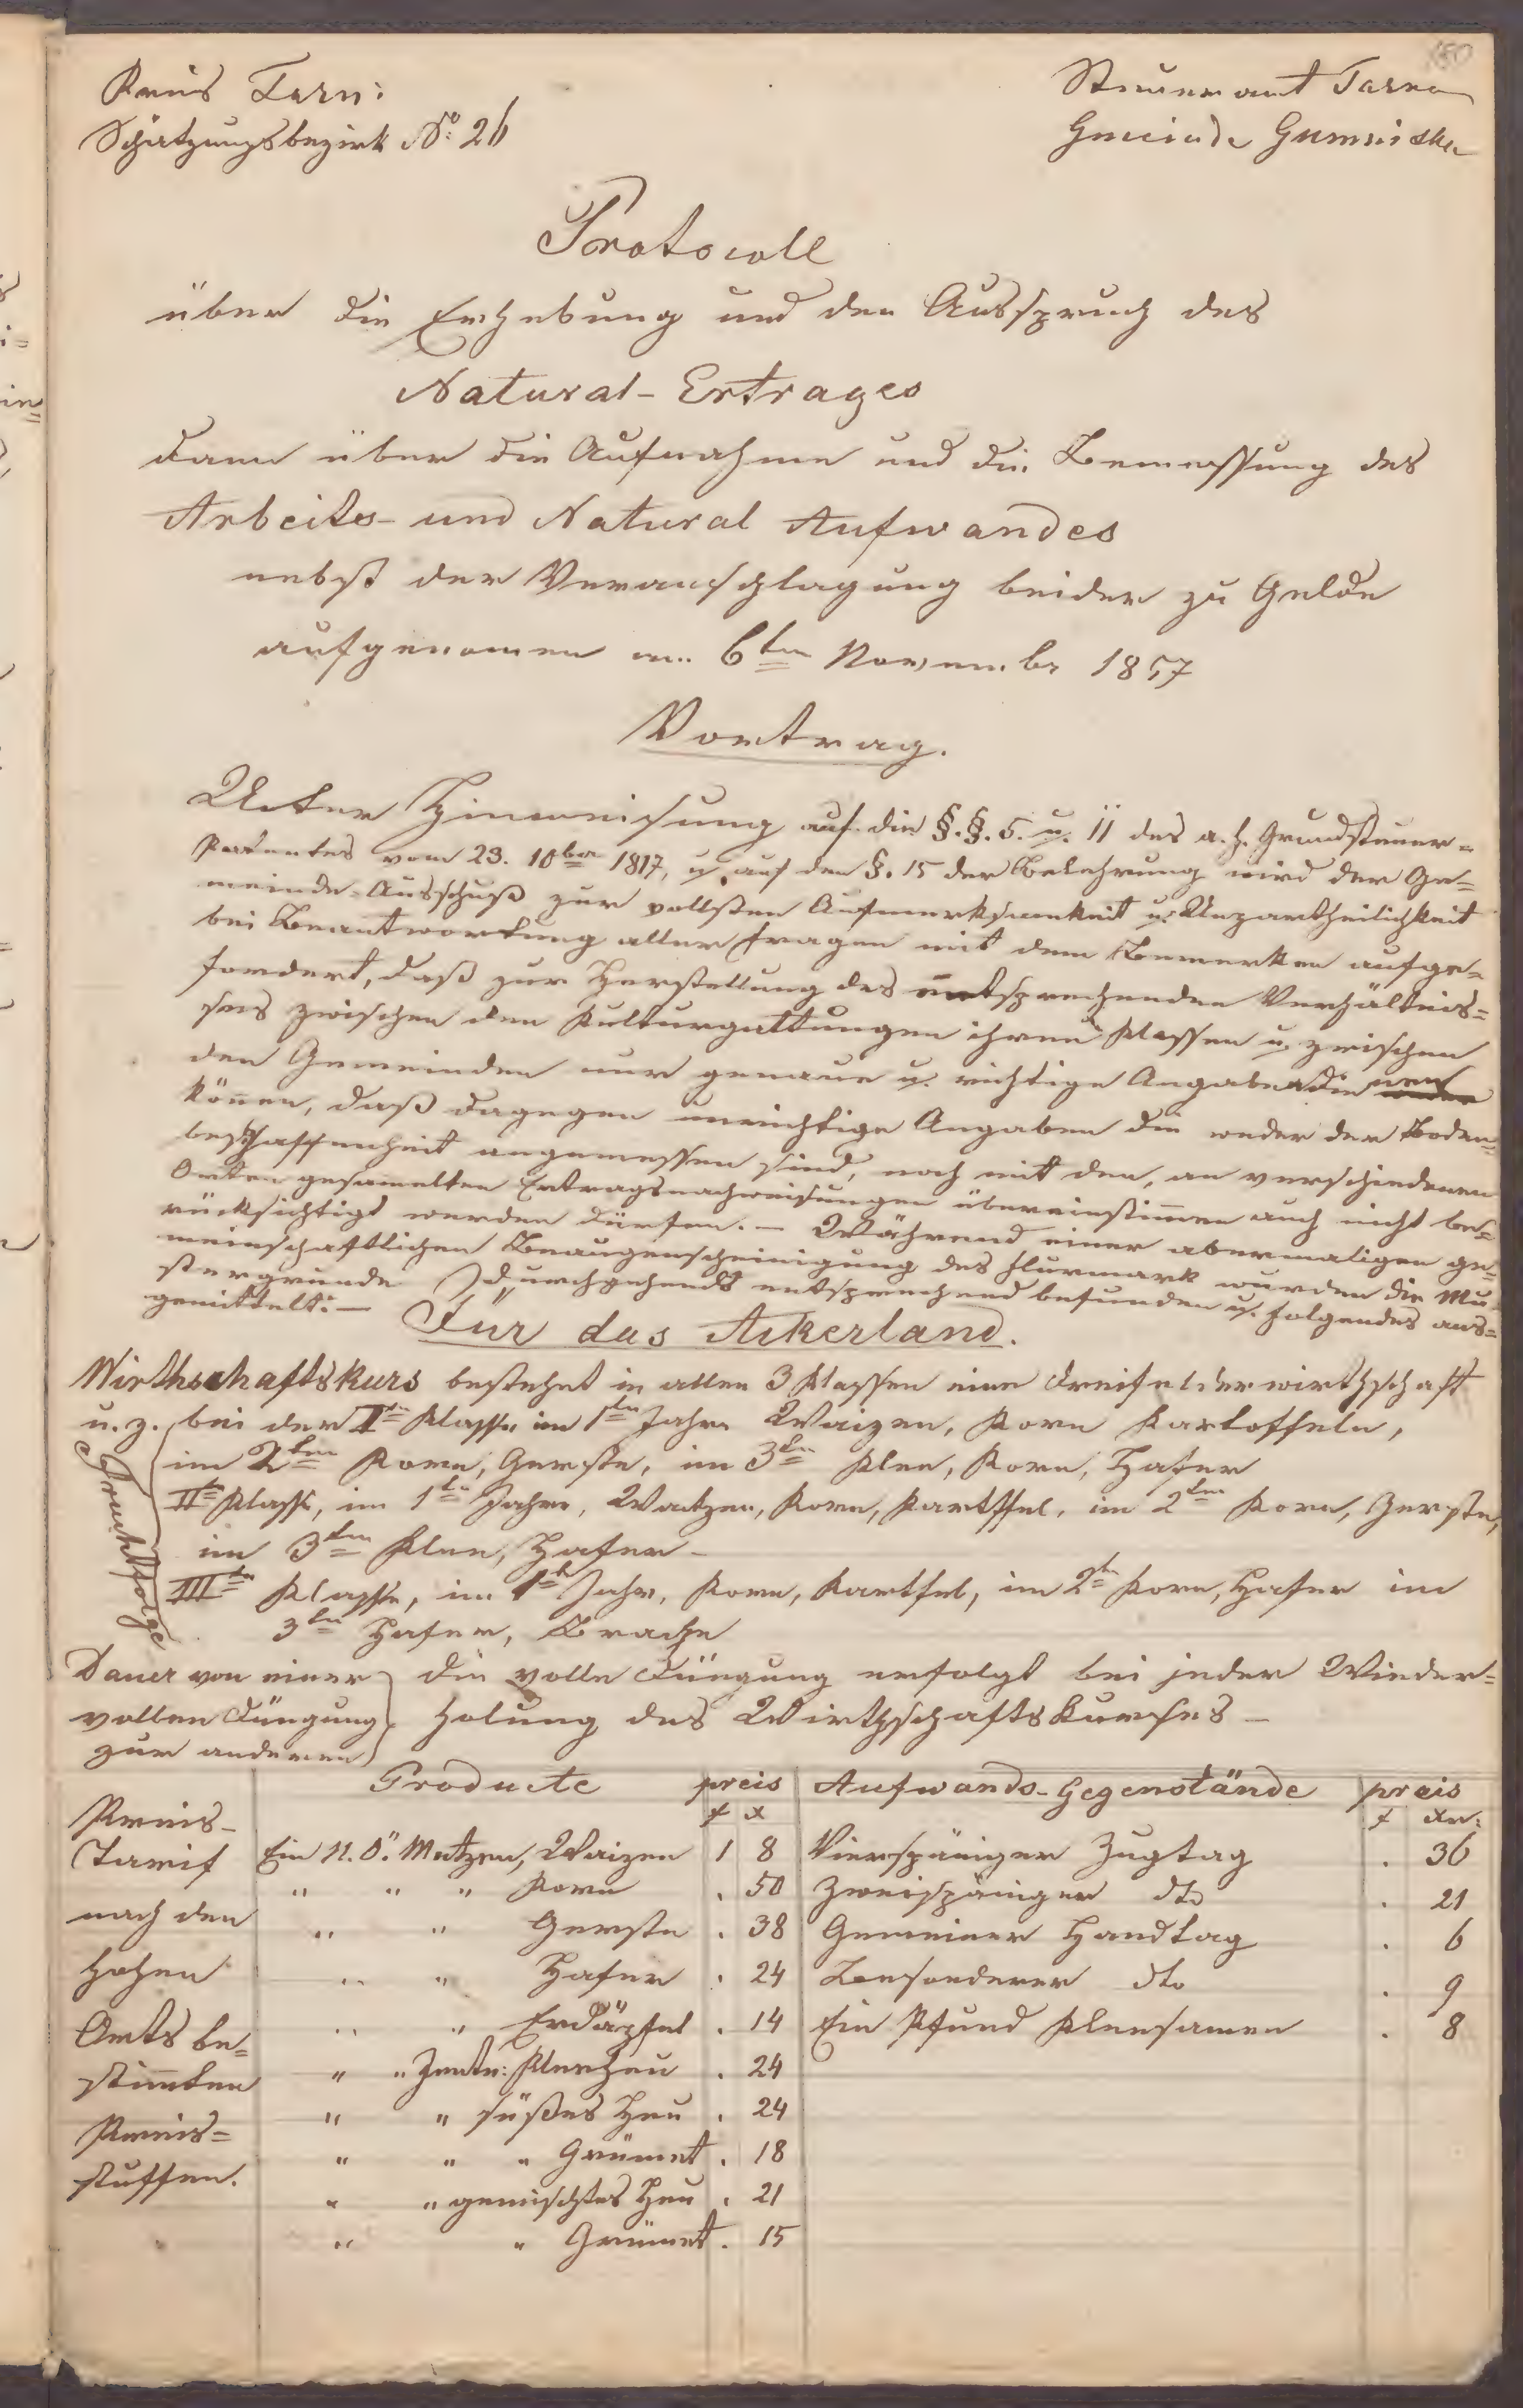 180
Kreis Tarn:
Steueramt Tarno
Schätzungsbezirk No: 26
Gmeinde Gumniska
Protocoll
über die Erhebung und den Ausspruch des
Natural-Ertrages
dann über die Aufnahme und die Bemessung des
Arbeits- und Natural Aufwandes
nebst der Veranschlagung beider zu Gelde
aufgenomen am 6ten November 1857
Vortrag.
Unter Hinweisung auf die §.§. 5. u. 11 des a. h. Grundsteuer-
Patentes vom 23. 10ber 1817, u. auf den §. 15 der Belehrung wird der Ge=
meinde-Ausschuß zur vollsten Aufmerksamkeit u. Unpartheilichkeit
bei Beantwortung aller Fragen mit dem Bemerken aufge=
fordert, daß zur Herstellung des entsprechenden Verhältnis=
ses zwischen den Kulturgattungen ihren Klassen u. zwischen
den Gemeinden nur genaue u. richtige Angaben dienen
können, daß dagegen unrichtige Angaben die weder der Boden=
beschaffenheit angemessen sind, noch mit den, an verschiedenen
Orten gesamelten Ertragsnachweisungen übereinstimmen auch nicht be=
rücksichtigt werden dürfen. — Während einer abermaligen ge=
meinschaftlichen Beaugenscheinigung des Flurmark wurden die Mu=
stergrunde durchgehends entsprechend befunden u. folgendes aus=
gemittelt: —
Für das Ackerland.
Wirthschaftskurs bestehet in allen 3 Klassen eine Dreifelderwirthschaft
u. z. bei der Iten Klasse im 1ten Jahre Waizen, Korn Kartoffeln,
im 2ten Korn, Gerste, im 3ten Klee, Korn, Hafer
Fruchtfolge
IIte Klasse, im 1ten Jahre, Waitzen, Korn, Kartffel, im 2ten Korn, Gerste,
im 3ten Klee, Hafer —
IIIte Klasse, im 1ten Jahr, Korn, Kartfel, im 2ten Korn, Hafer im
3ten Hafer, Brache
Dauer von einer
vollen Düngung
zur anderen
die volle Düngung erfolgt bei jeder Wieder=
holung des Wirthschaftskurses —
Producte preis Aufwands-Gegenstände preis
f x f xr:
Preis-
Tarif
nach den
hohen
Orts be=
stimten
Preis=
stuffen.
Ein N. Ö. Metzen, Waizen 1 8 Vierspäniger Zugtag . 36
" " " Korn . 50 Zweispäniger dto . 21
" " Gerste . 38 Gemeiner Handtag . 6
" " Hafer . 24 Besonderer dto . 9
" " Erdäpfel . 14 Ein Pfund Kleesamen . 8
" " Zentn: Kleeheu . 24
" " süßes Heu . 24
" " " Grümet . 18
" " gemischtes Heu . 21
" " Grümet . 15